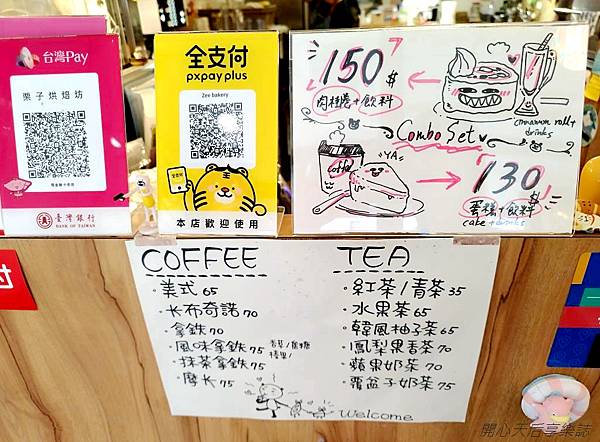 台灣Pay
栗子烘焙坊
臺灣銀行
BANK OF TAIWAN
全支付
pxpay plus
Zee bakery
全支付
本店歡迎使用
150$
肉桂捲+飲料
cinnamon roll+
drinks
Combo Set
coffee
YA
130$
蛋糕+飲料
cake+drinks
付
COFFEE
・美式 65
・卡布奇諾 70
・拿鐵 70
・風味拿鐵 75
・抹茶拿鐵 75
・摩卡 75
TEA
・紅茶/青茶 35
・水果茶 65
・韓風柚子茶 65
・鳳梨果香茶 70
・蘋果奶茶 70
・覆盆子奶茶 75
Welcome
開心天后享樂誌